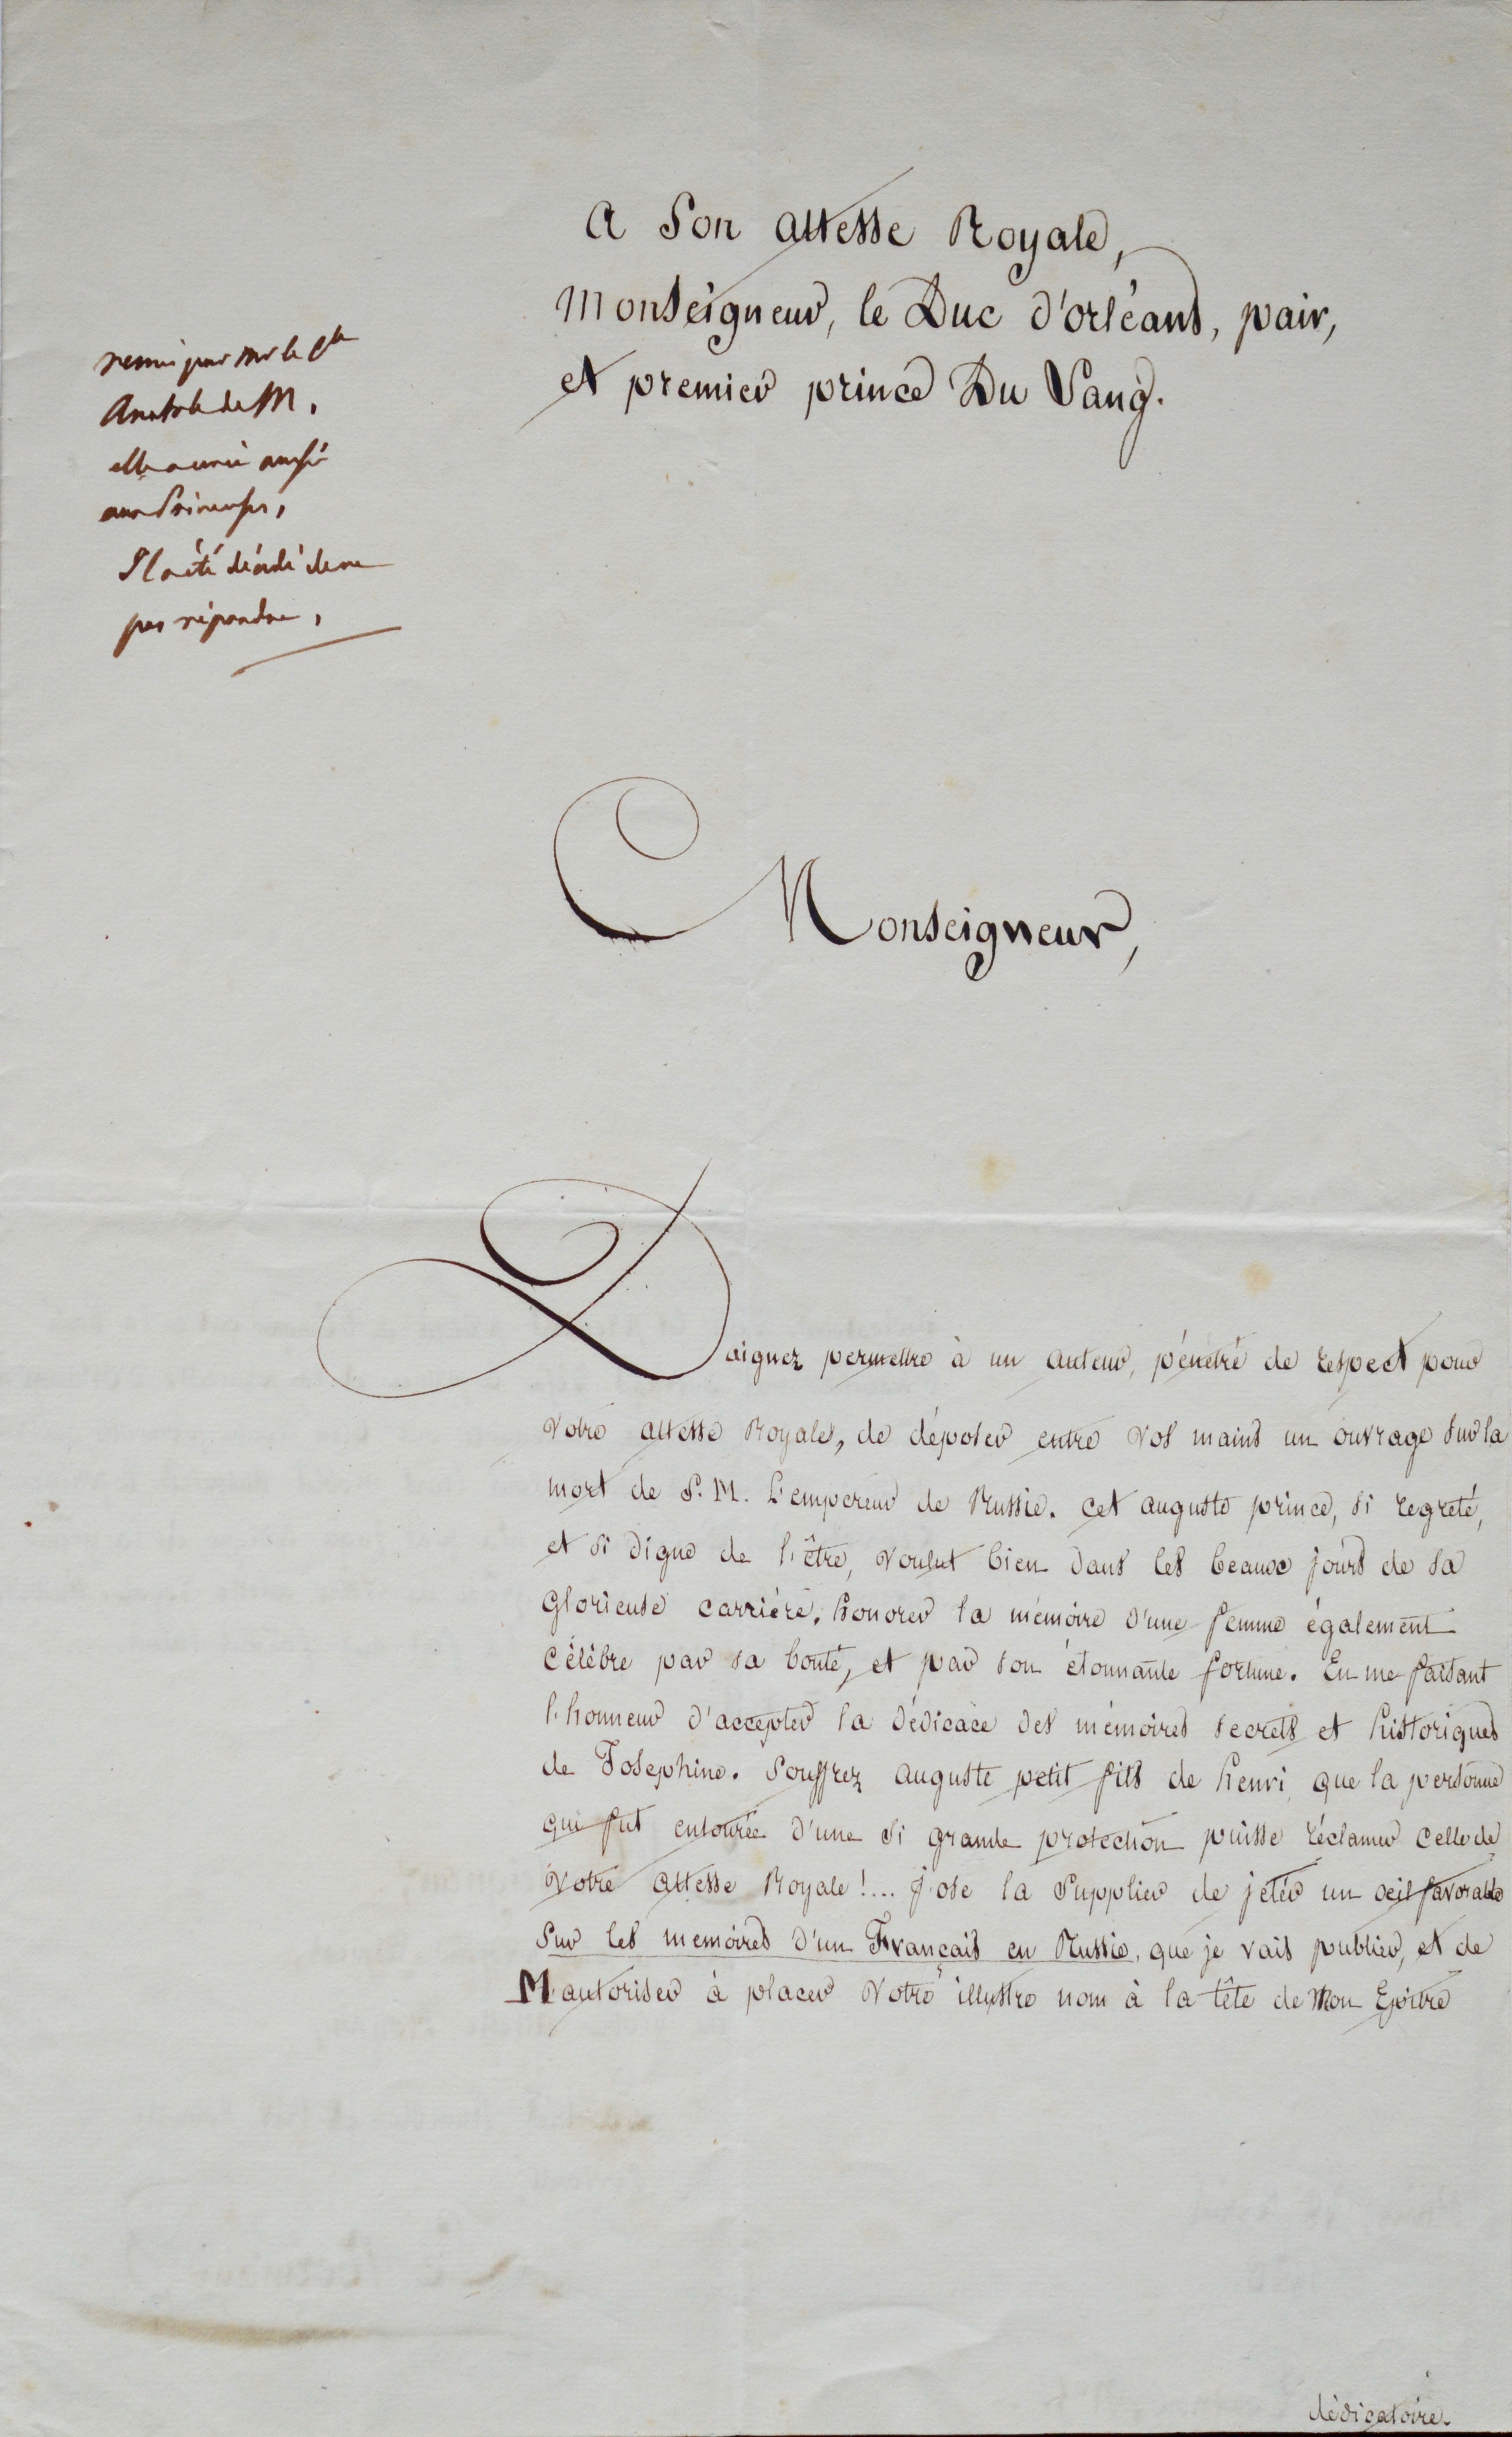 A Son Altesse Royale,
Monseigneur, le Duc d'orléans, pair,
et premier prince Du Sang.
remis par Mr le Cte
Anatole de M.
elle a écrit aussi
aux Princesses,
Il a été décidé de ne
pas répondre,
Monseigneur,
Daignez permettre à un auteur, pénétré de respect pour
Votre Altesse Royale, de déposer entre vos mains un ouvrage sur la
mort de S. M. L'empereur de Russie. cet auguste prince, si regreté,
et si digne de l'être, voulut bien dans les beaux jours de sa
glorieuse carrière, honorer la mémoire d'une femme également
célèbre par sa bonté, et par son étonnante fortune. En me faisant
l'honneur d'accepter la dédicace des mémoires secrets et historiques
de Josephine. Souffrez auguste petit fils de henri, que la personne
qui fut entourée d'une si grande protection puisse réclamer celle de
Votre Altesse Royale !... j'ose la supplier de jeter un oeil favorable
Sur les memoires d'un Français en Russie, que je vais publier, et de
M'autoriser à placer Votre illustre nom à la tête de Mon Epitre
dédicatoire.